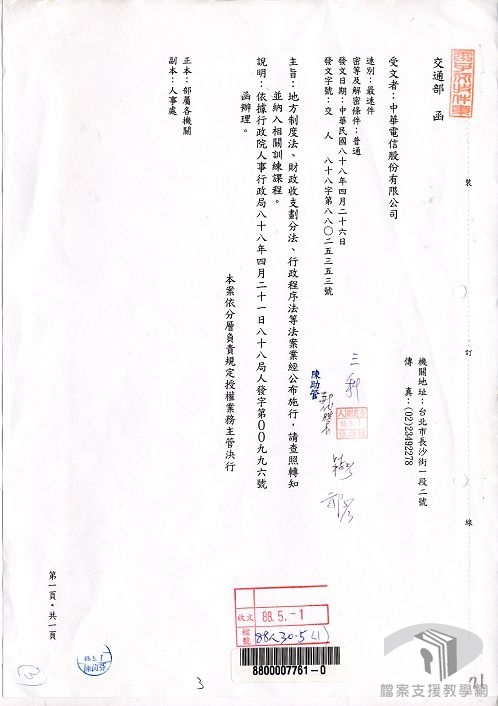 交通部　函
機關地址：台北市長沙街一段二號
傳　真：(02)23492278
受文者：中華電信股份有限公司
速別：最速件
密等及解密條件：普通
發文日期：中華民國八十八年四月二十六日
發文字號：交　人　八十八字第八八０二五三五三號
主旨：地方制度法、財政收支劃分法、行政程序法等法案業經公布施行，請查照轉知
並納入相關訓練課程。
說明：依據行政院人事行政局八十八年四月二十一日八十八局人發字第００九九六號
函辦理。
正本：部屬各機關
副本：人事處
本案依分層負責規定授權業務主管決行
裝
訂
線
三科
陳助管
收文 88.5.-1
檔號 88人30.5(1)
8800007761-0
第一頁，共一頁
88.5.1
3
21
檔案支援教學網